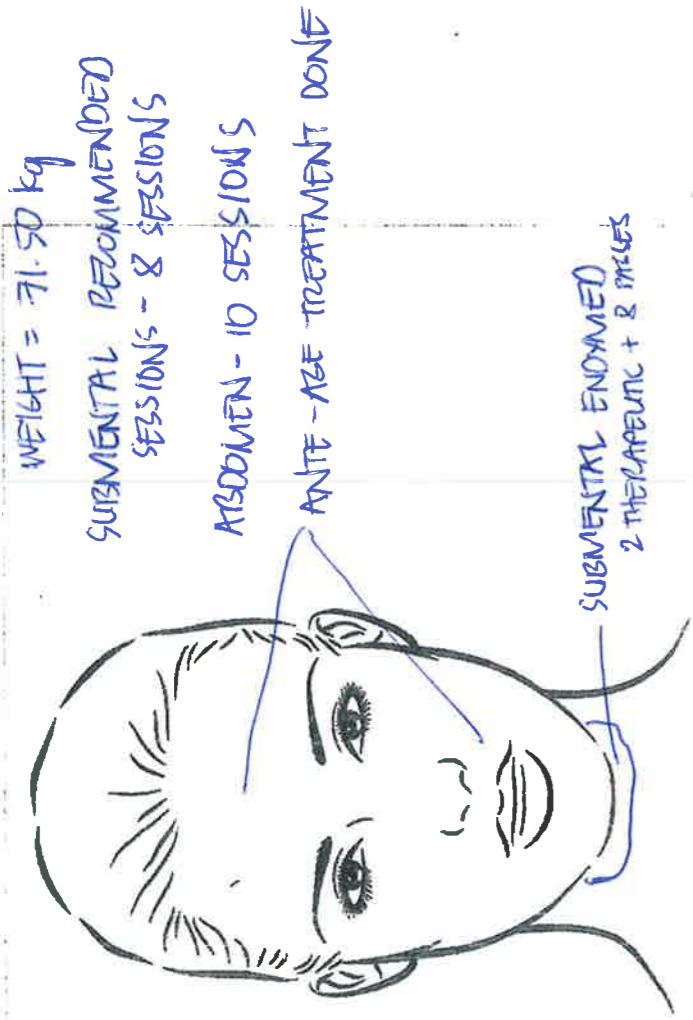 WEIGHT = 71.50 kg
SUBMENTAL RECOMMENDED
SESSIONS - 8 SESSIONS
ABDOMEN - 10 SESSIONS
ANTE-AGE TREATMENT DONE
SUBMENTAL ENDYMED
2 THERAPEUTIC + 8 PASSES